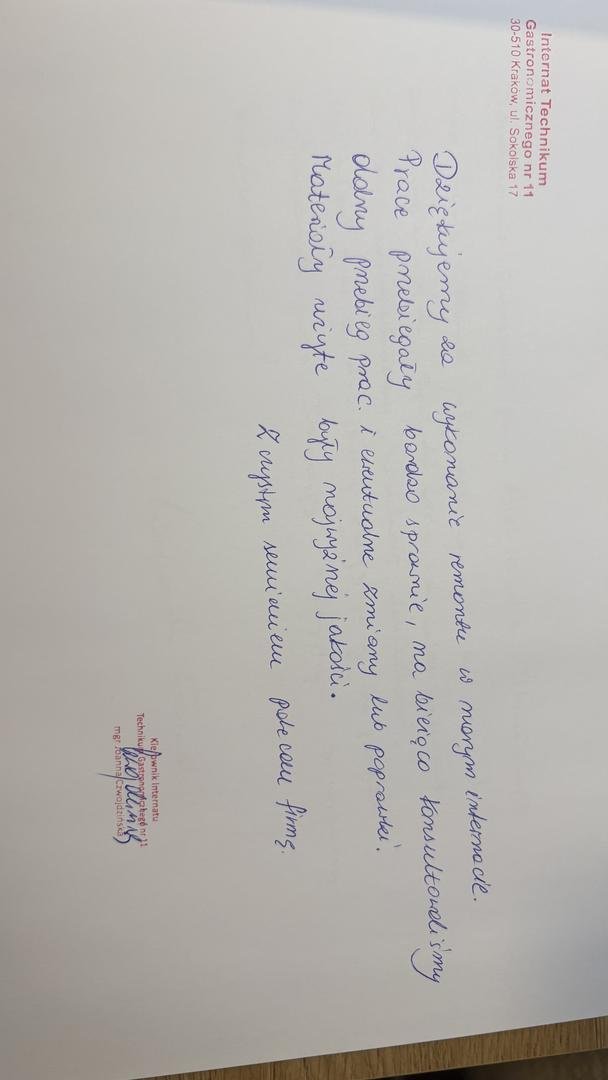 Internat Technikum
Gastronomicznego nr 11
30-510 Kraków, ul. Sokolska 17
Dziękujemy za wykonanie remontu w naszym internacie.
Prace przebiegały bardzo sprawnie, na bieżąco konsultowaliśmy
dalszy przebieg prac i ewentualne zmiany lub poprawki.
Materiały użyte były najwyższej jakości.
Z czystym sumieniem polecam firmę.
Kierownik Internatu
Technikum Gastronomicznego nr 11
mgr Joanna Czwojdzińska